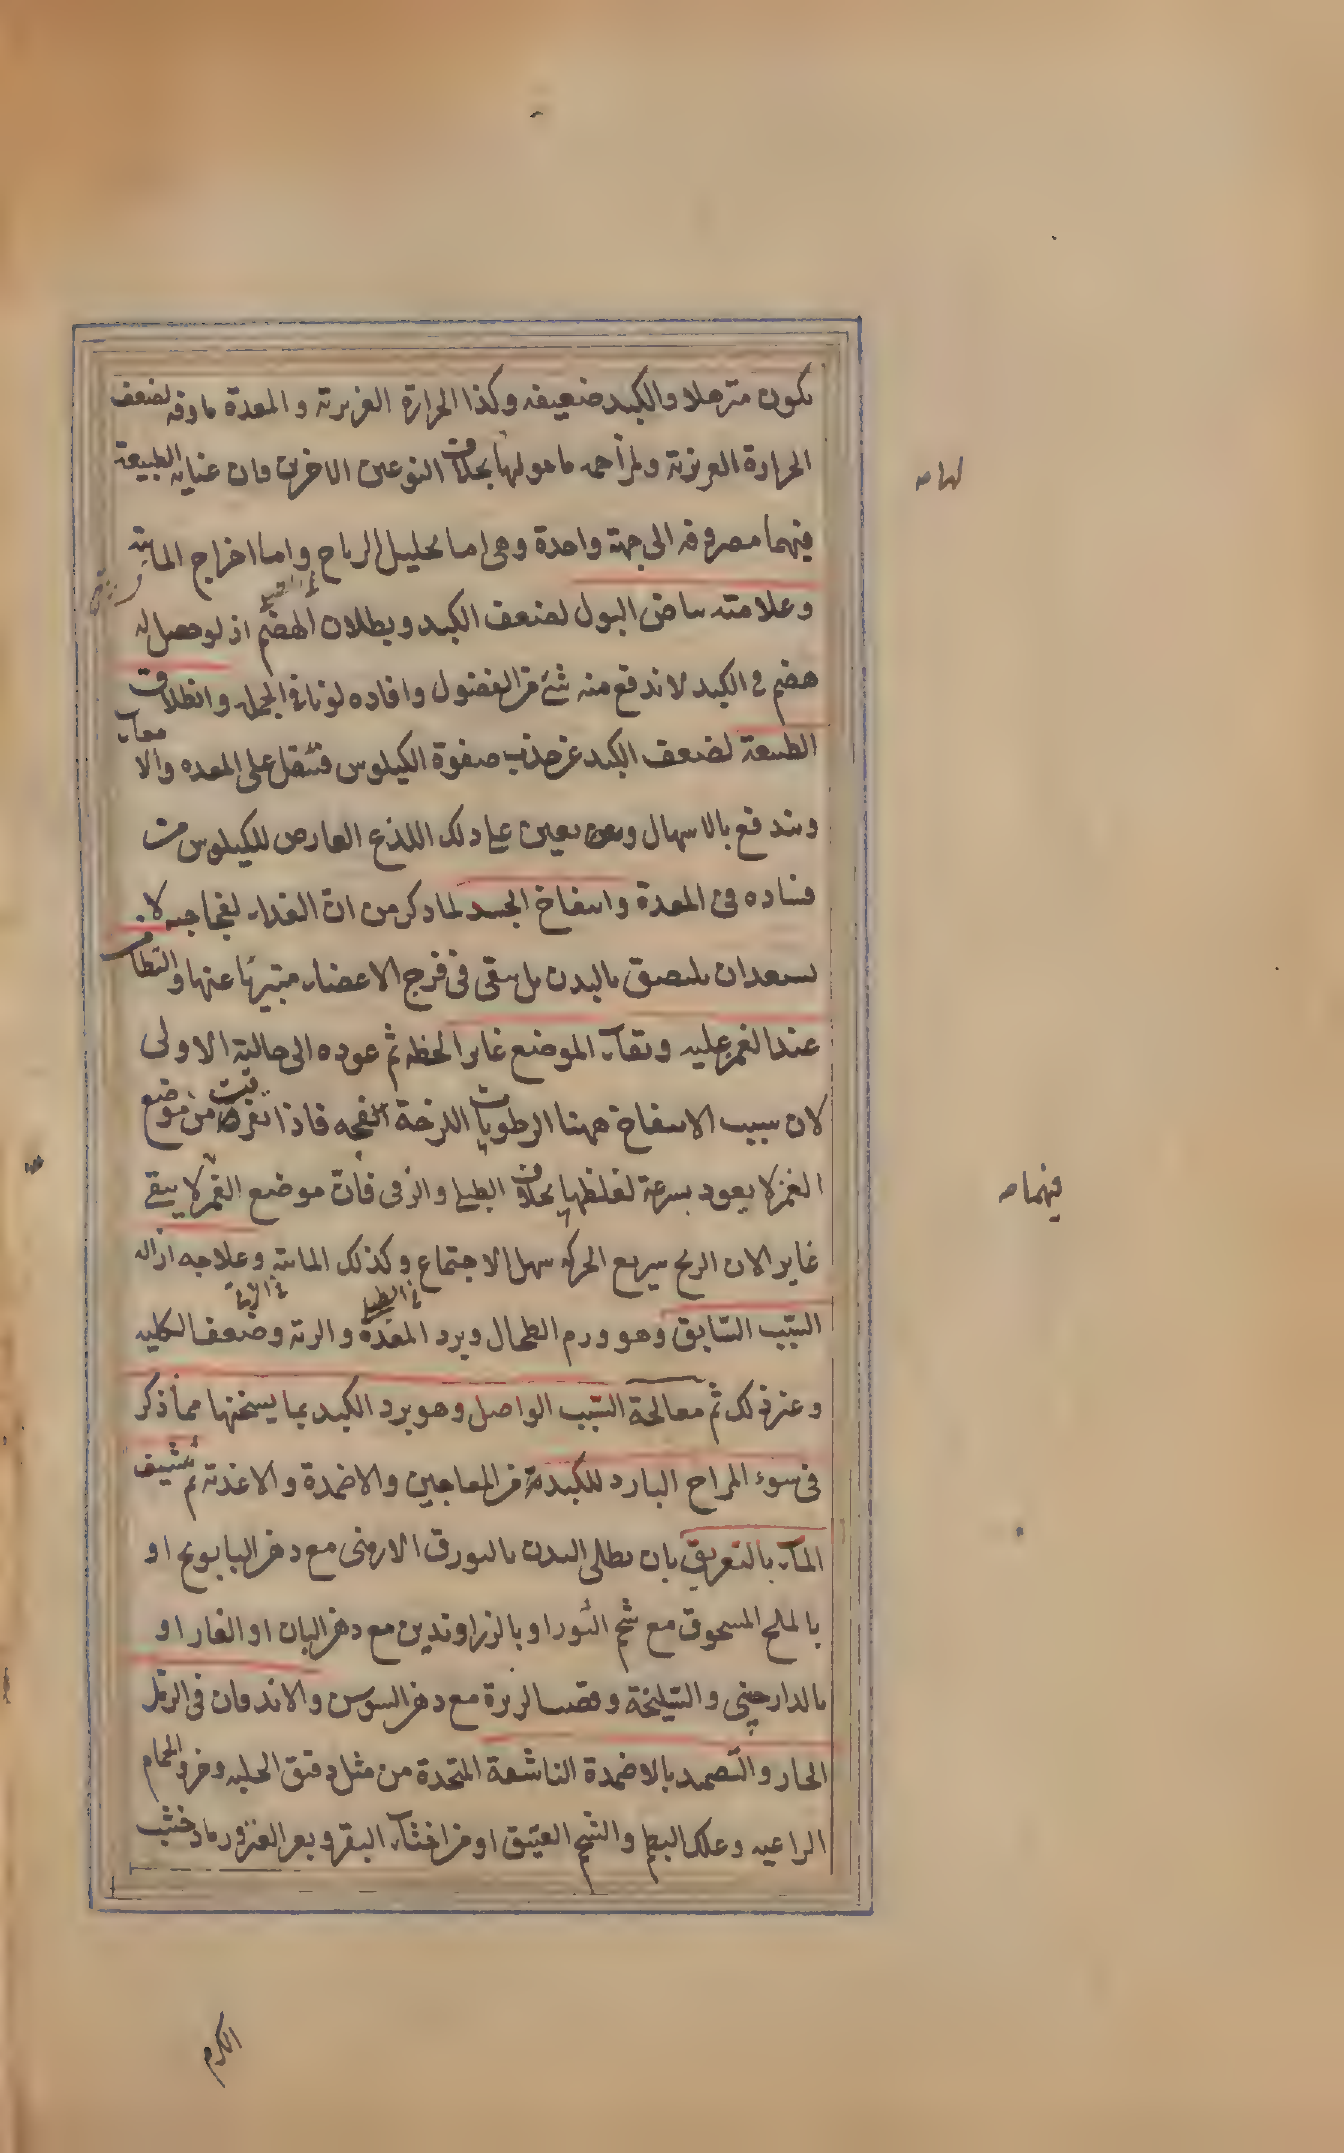 يكون مترهلا والكبد ضعيفه وكذا الحرارة الغريزية والمعدة ماوفه لضعف
الحرارة الغريزية ولمزاحمه ما هو لها بخلاف النوعين الاخرين فان عناية الطبيعة
فيهما مصروفه الى جهة واحدة وهى اما تحليل الرياح واما اخراج المائية
وعلامته بياض البول لضعف الكبد وبطلان الهضم اذ لو حصل له
هضم فى الكبد لاندفع منه شئ من الفضول وافاده لونا فى الجمله وانطلاق
الطبيعة لضعف الكبد عن جذب صفوة الكيلوس فتثقل على المعده والامعاء
ويندفع بالاسهال ويعين على ذلك اللذع العارض للكيلوس من
فساده فى المعدة وانتفاخ الجسد لما ذكر من ان الغذاء لفجاجته لا
يستعد ان يلتصق بالبدن بل يبقى فى فرج الاعضاء متبريا عنها والتطامن
عند الغمز عليه وبقاء الموضع غايرا لحظه ثم عوده الى حالته الاولى
لان سبب الانتفاخ ههنا الرطوبات اللزخة الفجه فاذا تفرقت من موضع
الغمز لا يعود بسرعة لغلظها بخلاف الطبلى والزقى فان موضع الغمز لا يبقى
غايرا لان الريح سريع الحركه سهل الاجتماع وكذلك المائية وعلاجه ازاله
السبب السابق وهو ورم الطحال وبرد المعدة والرية وضعف الكليه
وغير ذلك ثم معالجة السبب الواصل وهو برد الكبد بما يسخنها مما ذكر
فى سوء المزاج البارد للكبد من المعاجين والاضمدة والاغذية ثم تنشيف
الماء بالتعريق بان يطلى البدن بالبورق الارمنى مع دهن البابونج او
بالملح المسحوق مع شحم الثور او بالزراوندين مع دهن البان او الغار او
بالدارچينى والسليخة وقصب الزريرة مع دهن السوسن والاندفان فى الرمل
الحار والتضميد بالاضمدة الناشفة المتخذة من مثل دقيق الحلبه وخرو الحمام
الراعيه وعلك البطم والشحم العتيق او من اخثاء البقر وبعر العنز ورماد خشب
الكرم
لها
فيهما